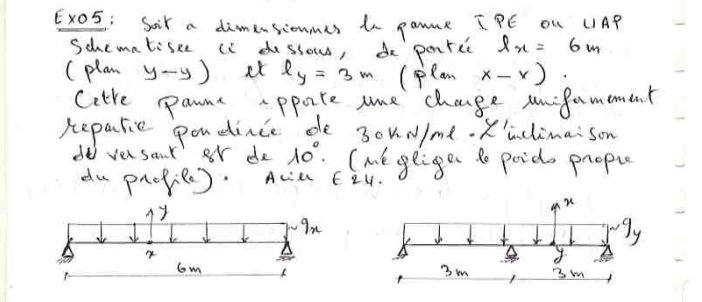 Exo5: Soit a dimensionner la panne IPE ou UAP
Schematisée ci dessous, de portée lx = 6 m
(plan y-y) et ly = 3 m (plan x-x).
Cette panne apporte une charge uniformement
repartie pondérée de 30KN/ml. L'inclinaison
du versant est de 10°. (négliger le poids propre
du profilé). Acier E24.
y qx
x
6m
x qy
y
3m 3m